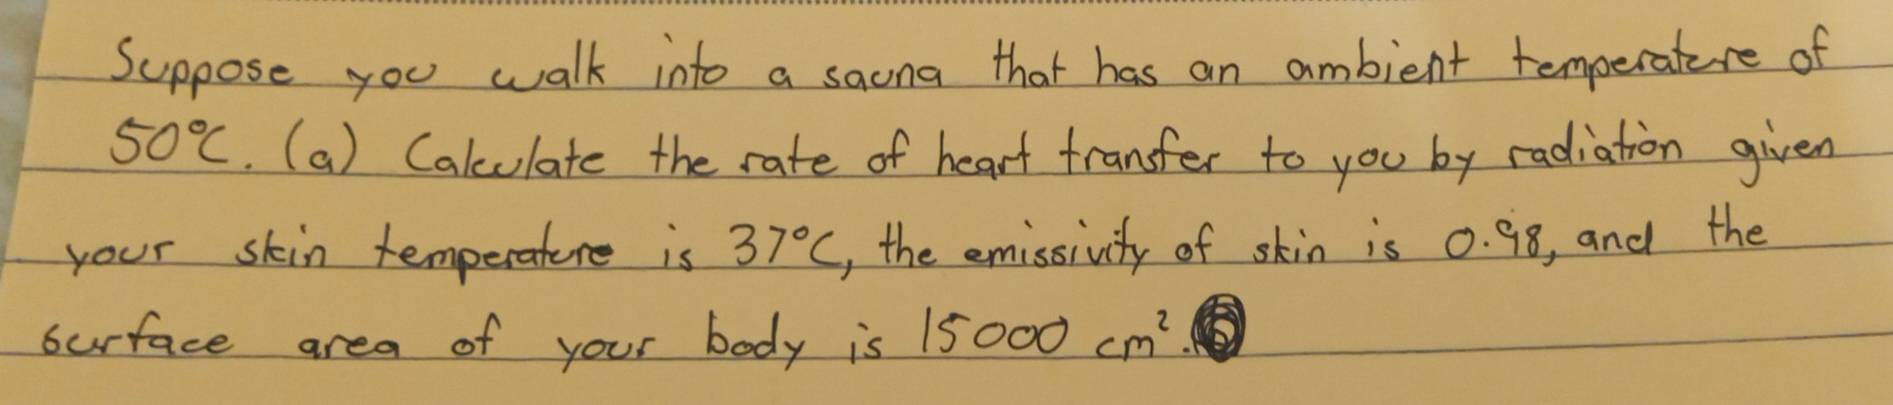 Suppose you walk into a sauna that has an ambient temperature of
50°C. (a) Calculate the rate of heart transfer to you by radiation given
your skin temperature is 37°C, the emissivity of skin is 0.98, and the
surface area of your body is 15000 cm².